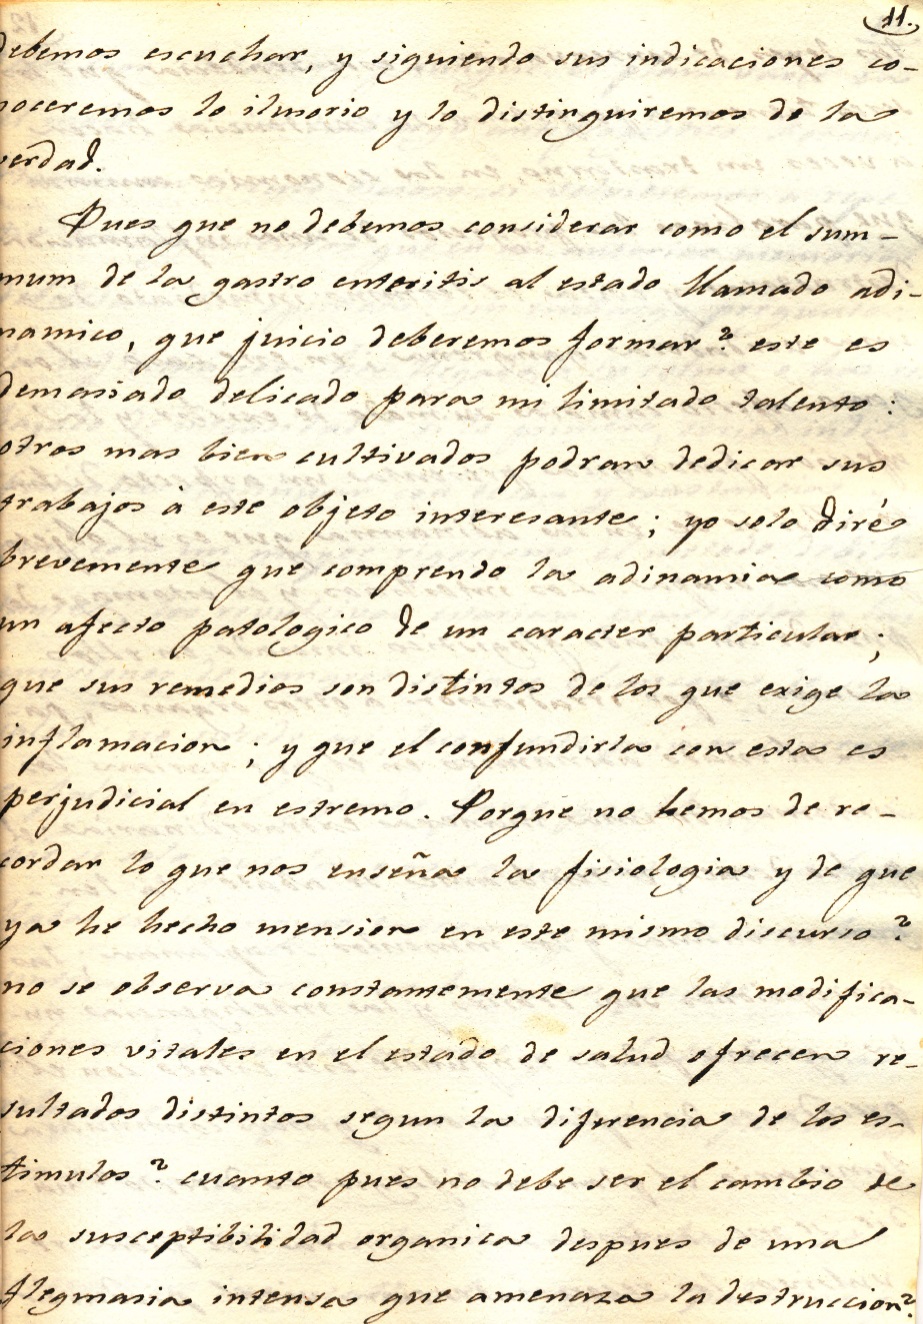 11.
debemos escuchar, y siguiendo sus indicaciones co-
noceremos lo ilusorio y lo distinguiremos de la
verdad.
Pues que no debemos considerar como el sum-
mum de la gastro enteritis al estado llamado adi-
namico, que juicio deberemos formar? este es
demasiado delicado para mi limitado talento:
otros mas bien cultivados podran dedicar sus
trabajos à este objeto interesante; yo solo diré
brevemente que comprendo la adinamia como
un afecto patologico de un caracter particular;
que sus remedios son distintos de los que exige la
inflamacion; y que el confundirla con esta es
perjudicial en estremo. Porque no hemos de re-
cordar lo que nos enseña la fisiologia y de que
ya he hecho mension en este mismo discurso?
no se observa constantemente que las modifica-
ciones vitales en el estado de salud ofrecen re-
sultados distintos segun la diferencia de los es-
timulos? cuanto pues no debe ser el cambio de
la susceptibilidad organica despues de una
flegmasia intensa que amenaza la destruccion?